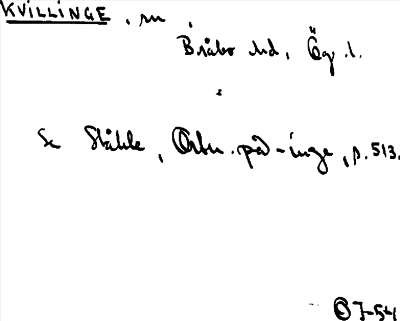 KVILLINGE, sn
Bråbo hd, Ög. l.
Se Ståhle, Ortn. på -inge, s. 513.
J-54